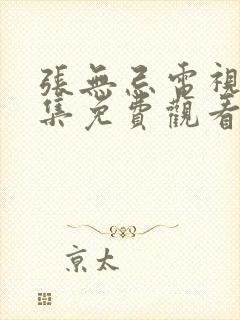 張無忌電視
集免費觀看
京太